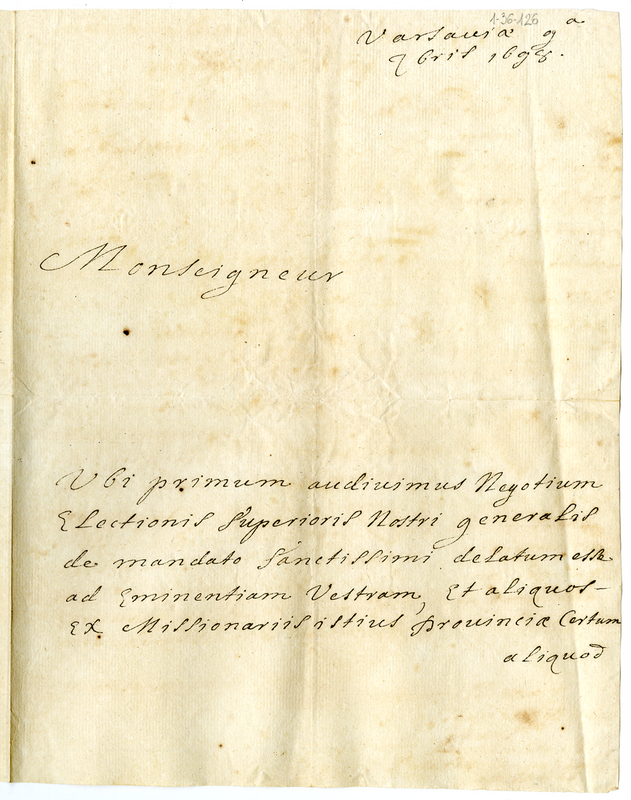 1-36-126
Varsaviæ 9a
7bris 169
Monseigneur
Ubi primum audivimus Negotium
Electionis Superioris Nostri generalis
de mandato Sanctissimi delatum esse
ad Eminentiam Vestram, Et aliquos
Ex Missionariis istius provinciæ Certum
aliquod